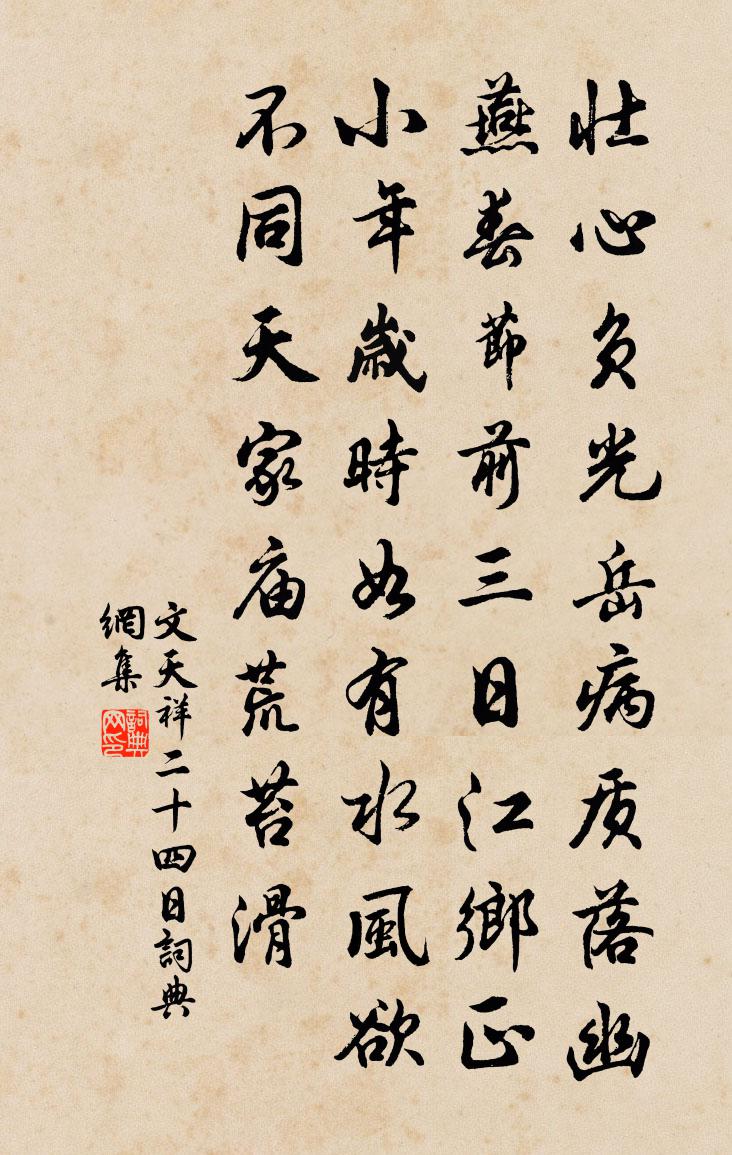 壮心负光岳病质落幽
燕春節前三日江鄉正
小年歲時如有水風欲
不同天家庙荒苔滑
文天祥二十四日詞典
網集
詞典
网印